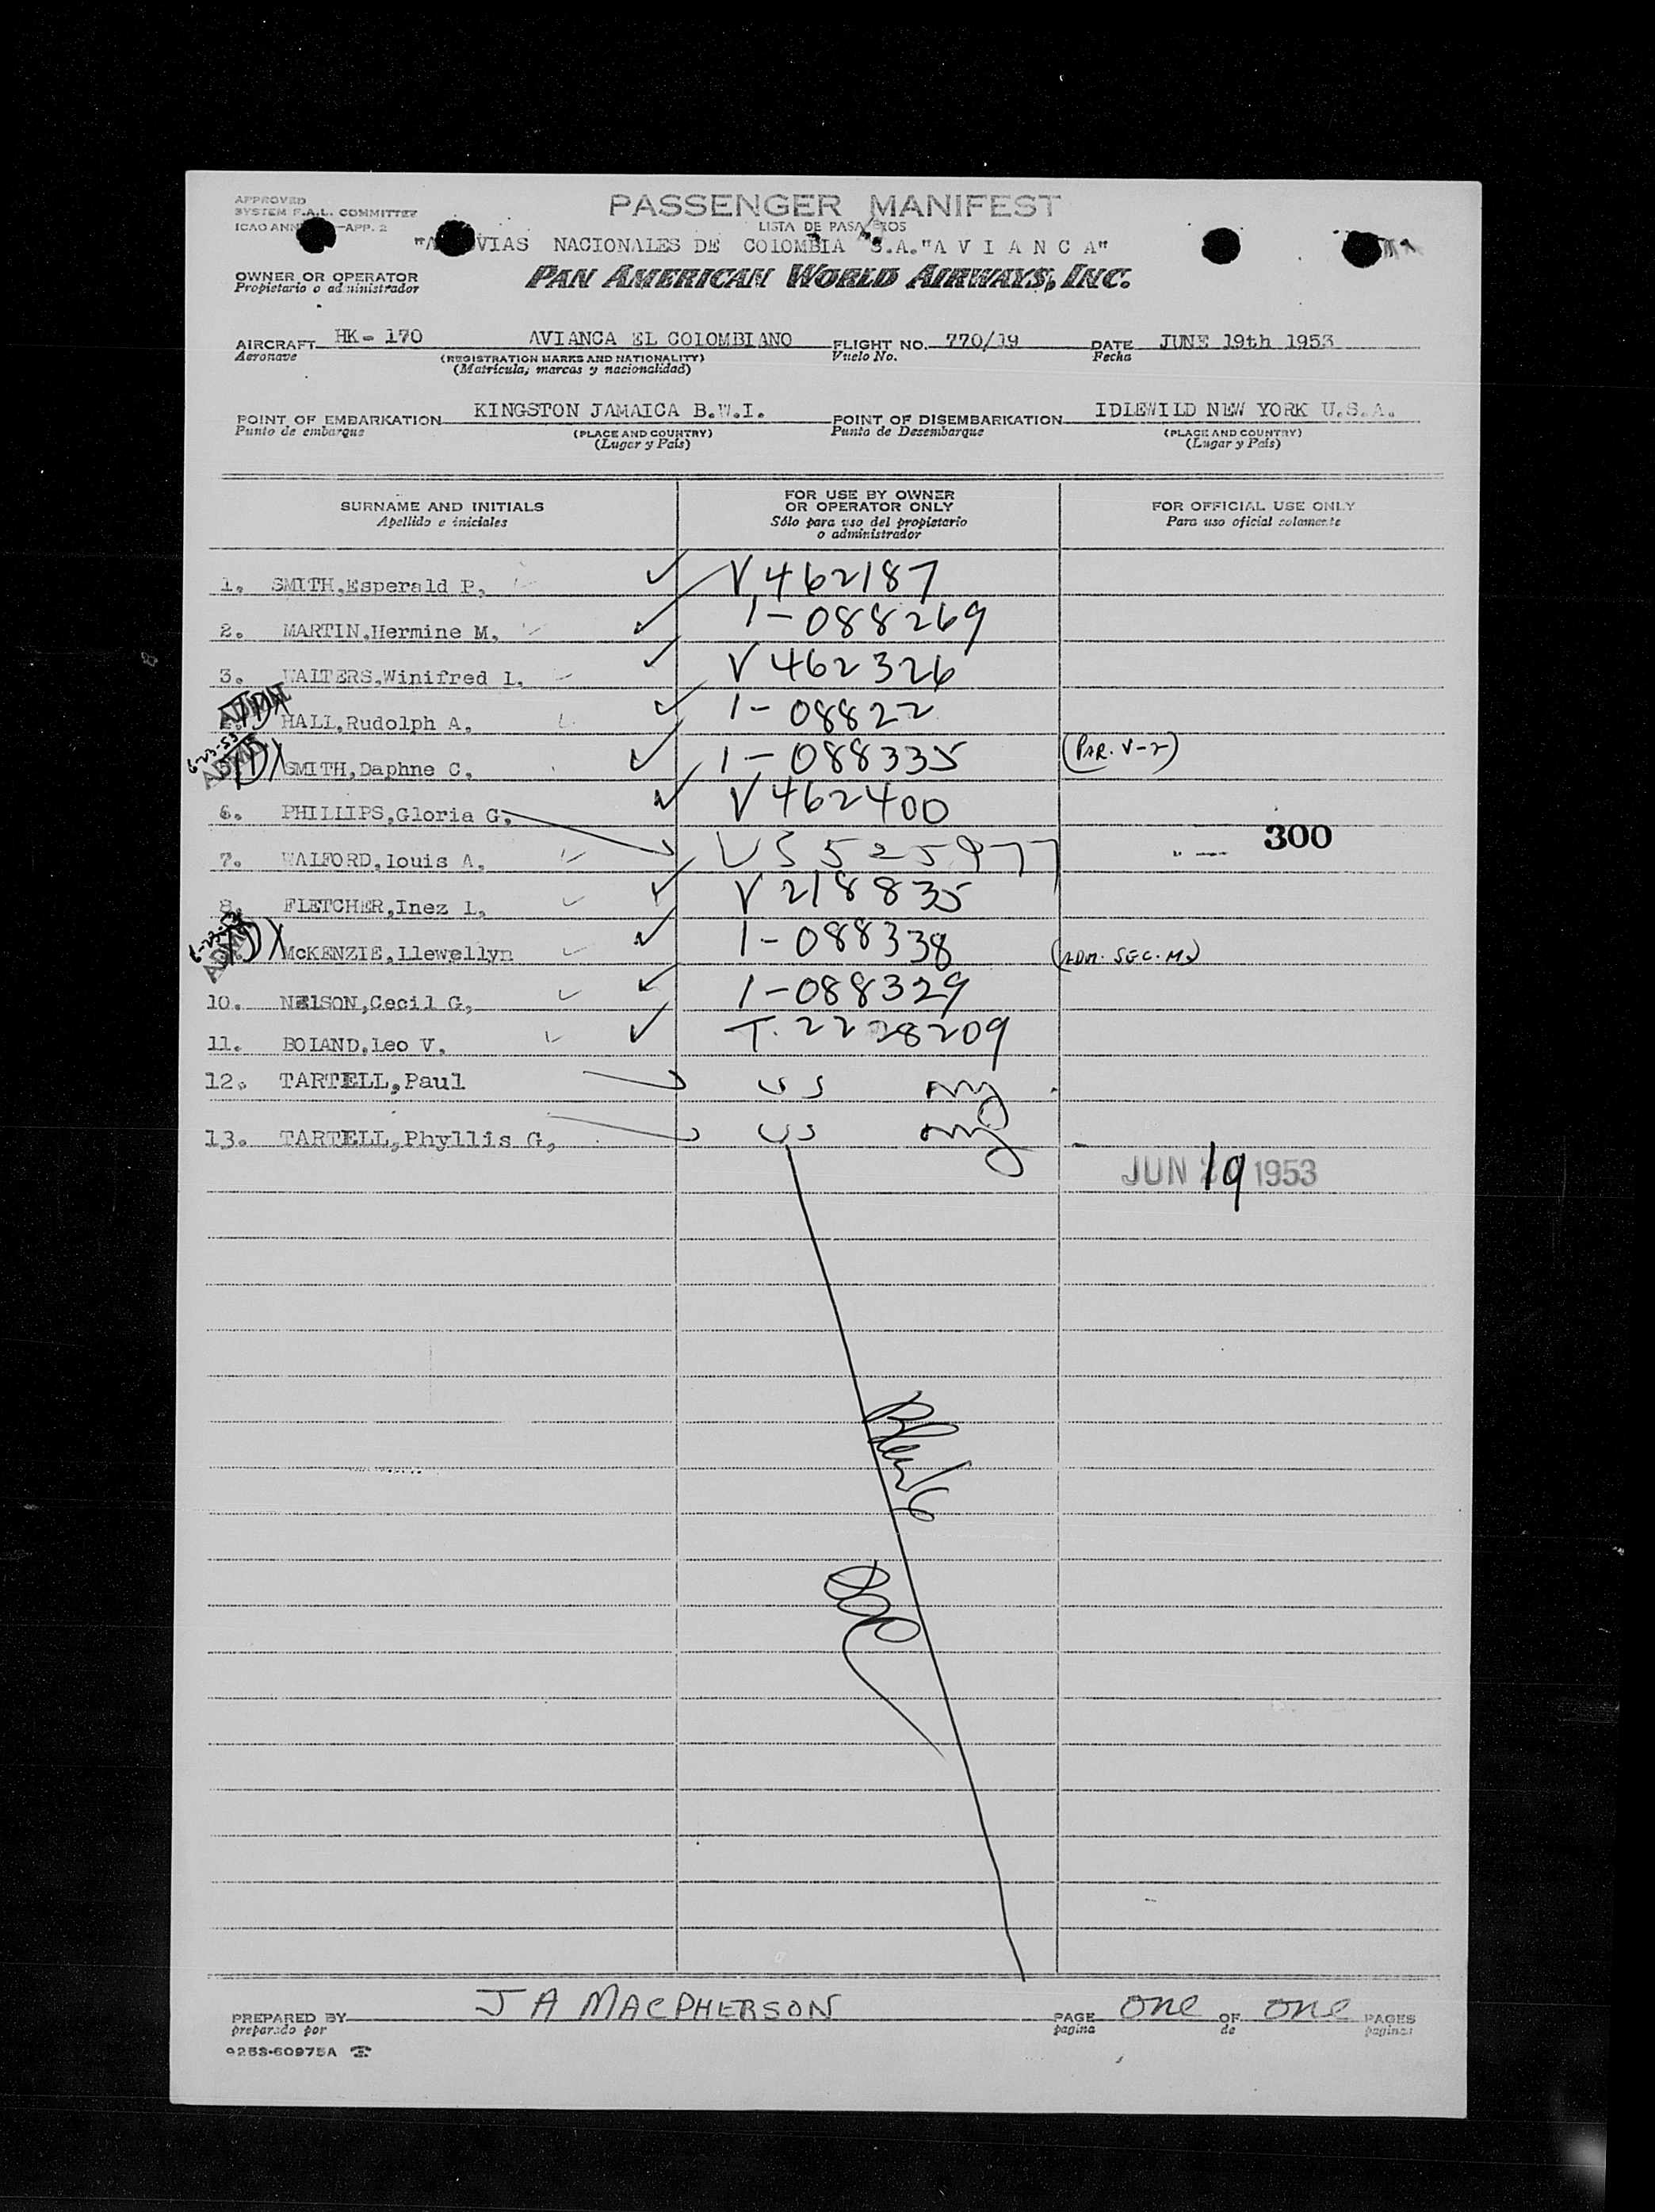 APPROVED
SYSTEM F.A.L. COMMITTEE
ICAO ANN -APP. 2
PASSENGER MANIFEST
LISTA DE PASAJEROS
"A VIAS NACIONALES DE COLOMBIA S.A."A V I A N C A"
OWNER OR OPERATOR
Propietario o administrador
PAN AMERICAN WORLD AIRWAYS, INC.
AIRCRAFT HK- 170 AVIANCA EL COLOMBIANO FLIGHT NO. 770/19 DATE JUNE 19th 1953
Aeronave (REGISTRATION MARKS AND NATIONALITY) Vuelo No. Fecha
(Matrícula, marcas y nacionalidad)
POINT OF EMBARKATION KINGSTON JAMAICA B.W.I. POINT OF DISEMBARKATION IDLEWILD NEW YORK U.S.A.
Punto de embarque (PLACE AND COUNTRY) Punto de Desembarque (PLACE AND COUNTRY)
(Lugar y País) (Lugar y País)
SURNAME AND INITIALS FOR USE BY OWNER OR OPERATOR ONLY FOR OFFICIAL USE ONLY
Apellido e iniciales Sólo para uso del propietario o administrador Para uso oficial solamente
1. SMITH,Esperald P, V462187
2. MARTIN,Hermine M, 1-088269
3. WALTERS,Winifred L, V462326
HALL,Rudolph A, 1-08822
6-23-53 SMITH,Daphne C, 1-088335 (PAR. V-2)
6. PHILLIPS,Gloria G, V462400
300
7. WALFORD,Louis A, US 525977
8. FLETCHER,Inez L, V218835
McKENZIE,Llewellyn 1-088338 (ADM. SEC.
10. NELSON,Cecil G, 1-088329
11. BOLAND,Leo V, T.2228209
12. TARTELL,Paul US
13. TARTELL,Phyllis G, US
JUN 19 1953
PREPARED BY J A MACPHERSON PAGE one OF one PAGES
preparado por pagina de paginas
9253-60975A